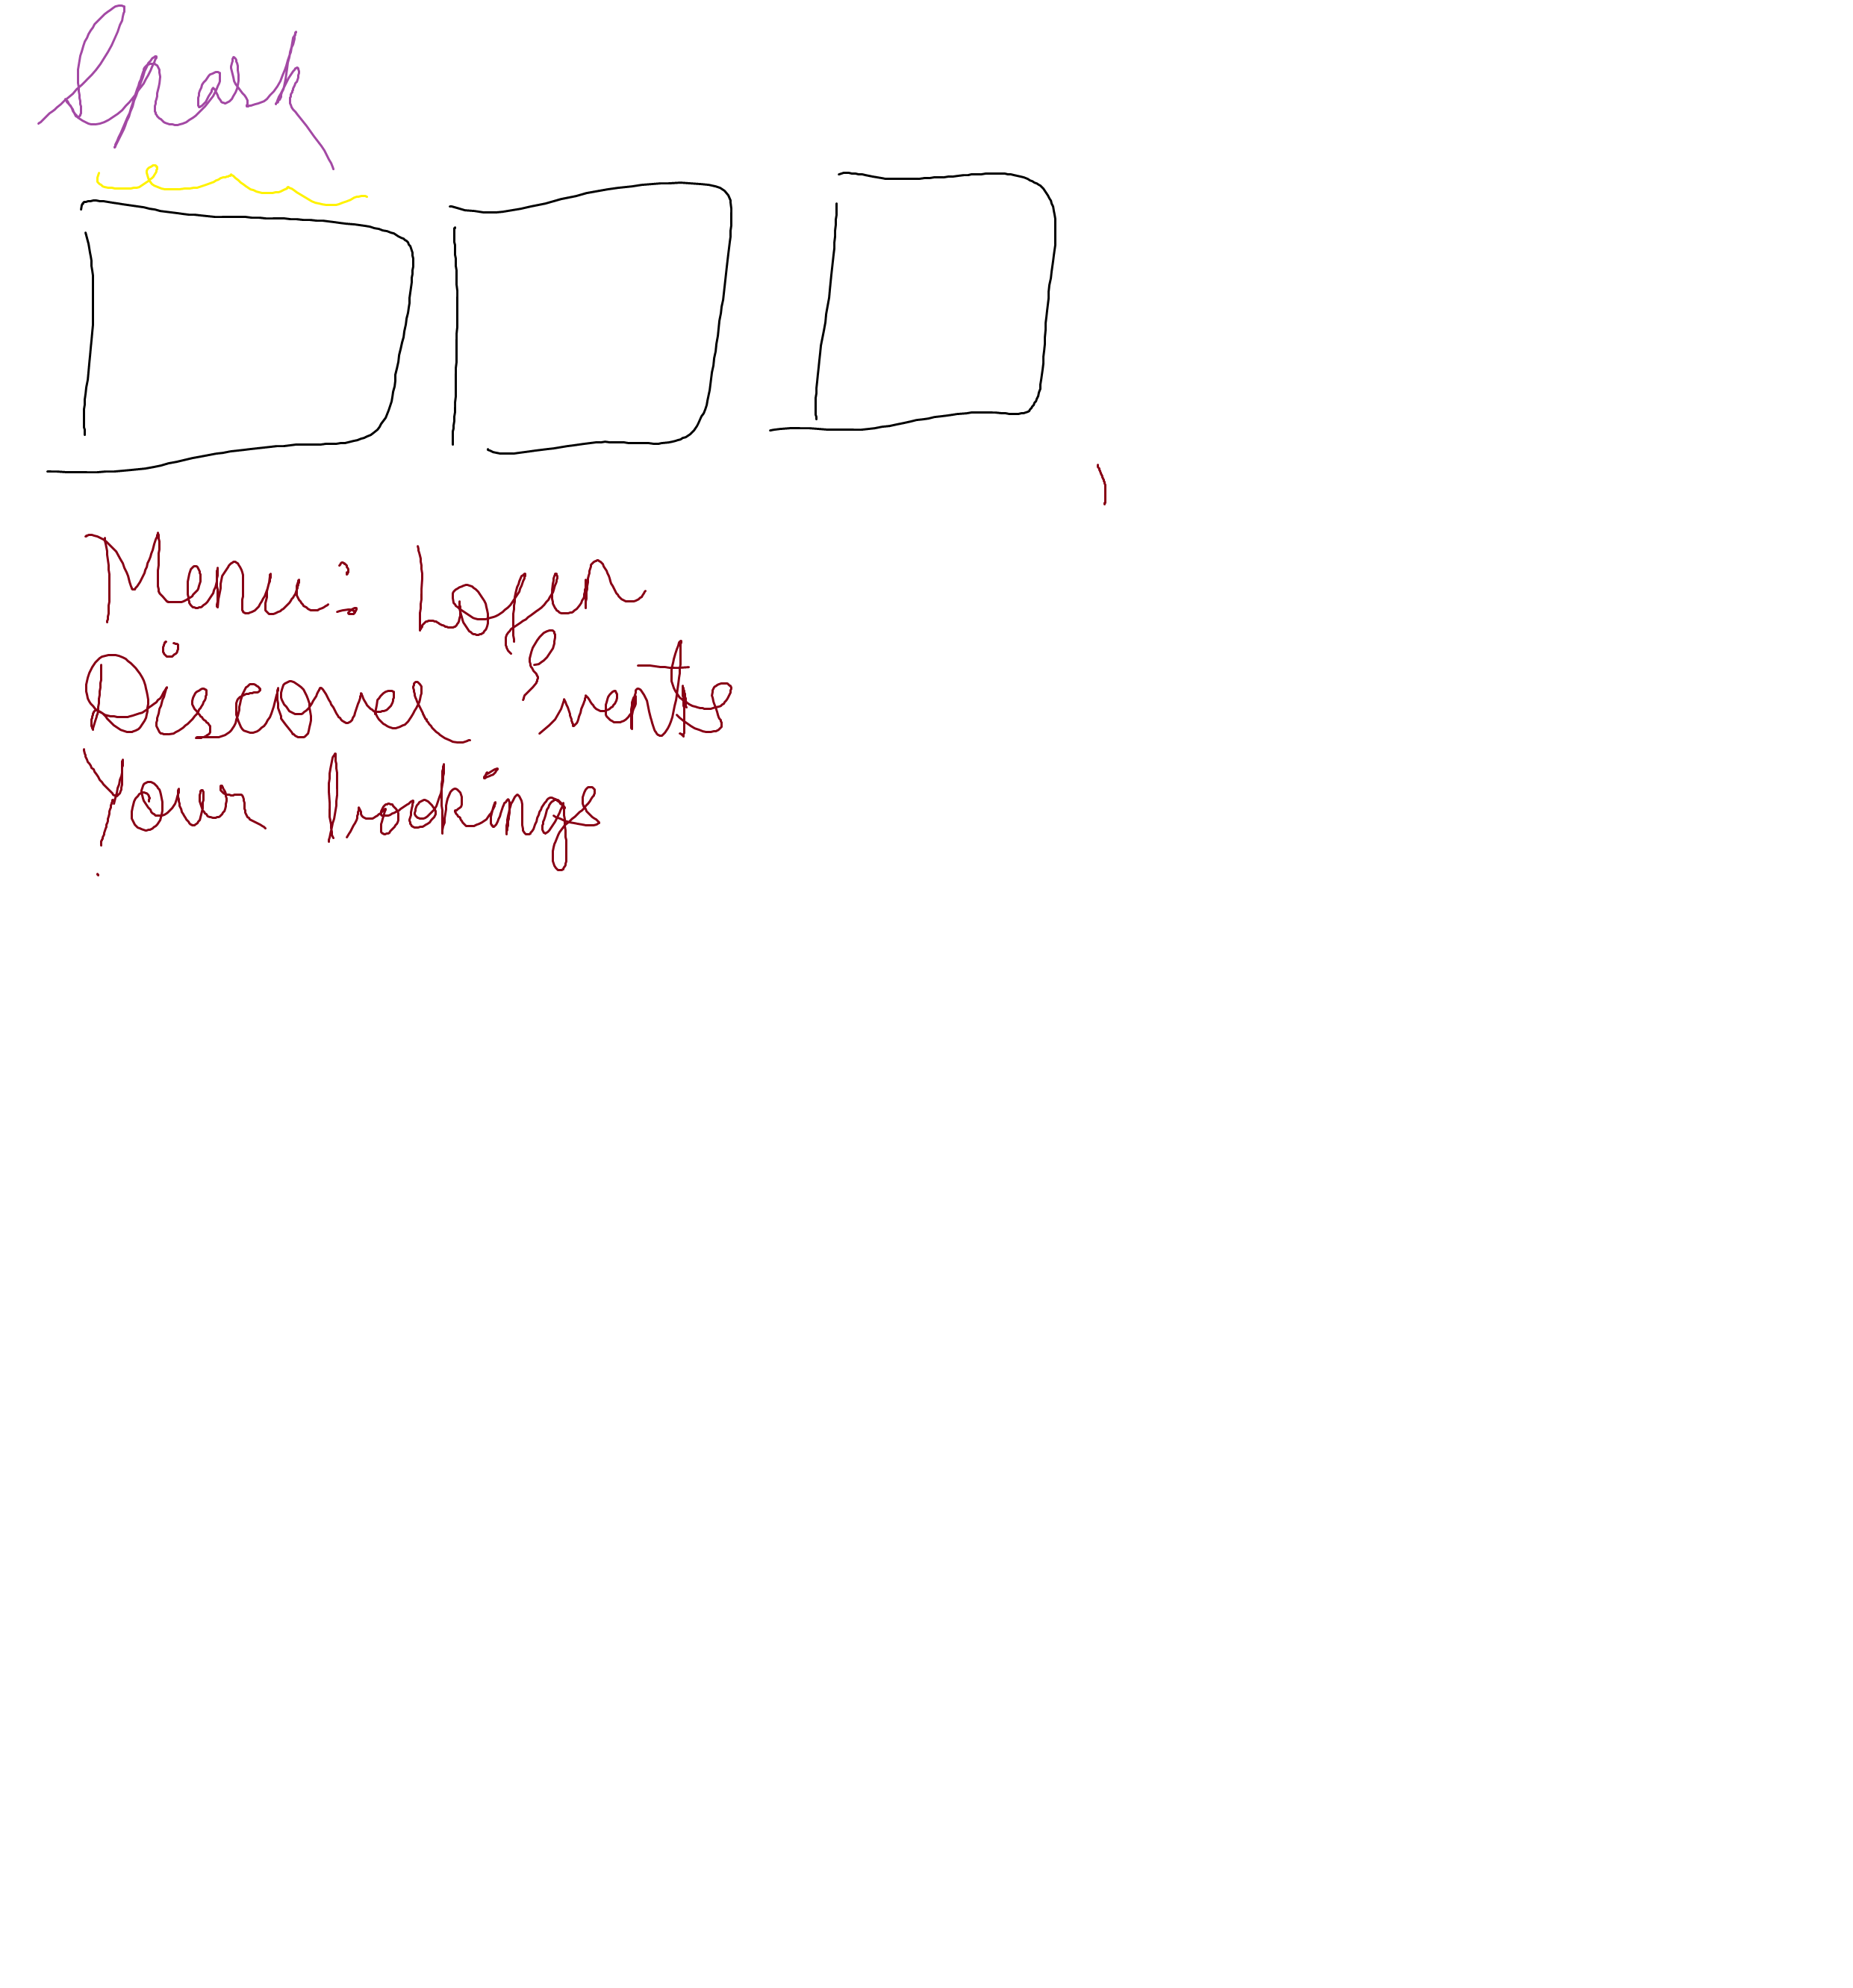 Spark
Menu: Login
Discover Events
Your bookings